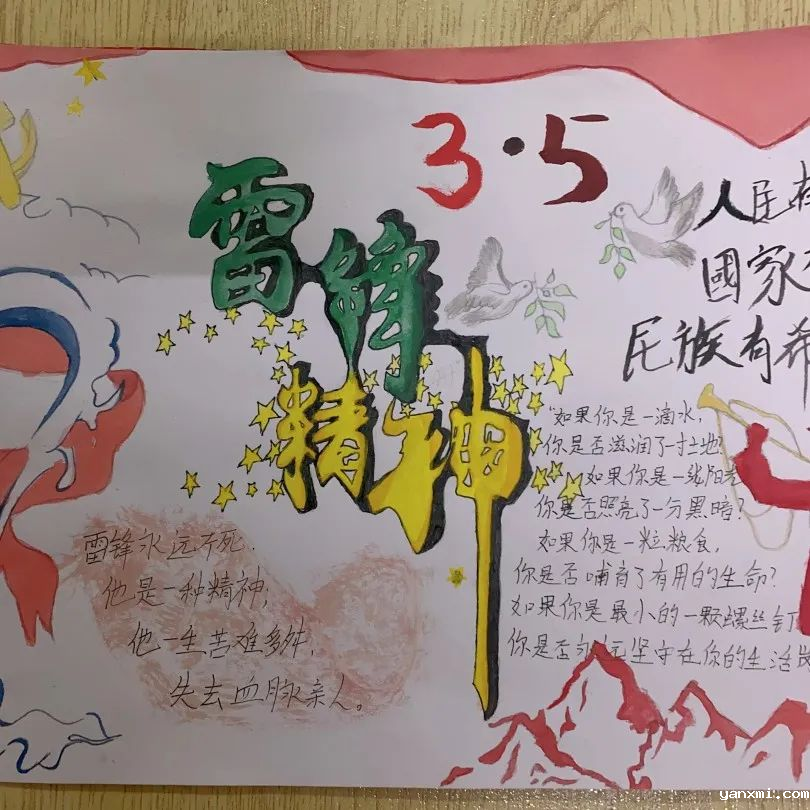 3·5
雷锋
精神
人民有
國家
民族有希
"如果你是一滴水,
你是否滋润了寸土地?
如果你是一线阳光
你是否照亮了一分黑暗?
如果你是一粒粮食,
你是否哺育了有用的生命?
如果你是最小的一颗螺丝钉
你是否永远坚守在你的生活岗
雷锋永远不死,
他是一种精神;
他一生苦难多舛,
失去血脉亲人。
yanxmi.com